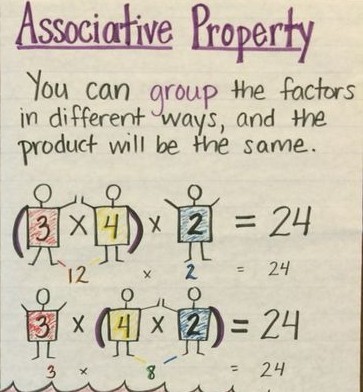 Associative Property
You can group the factors
in different ways, and the
product will be the same.
(3 × 4) × 2 = 24
12 × 2 = 24
3 × (4 × 2) = 24
3 × 8 = 24